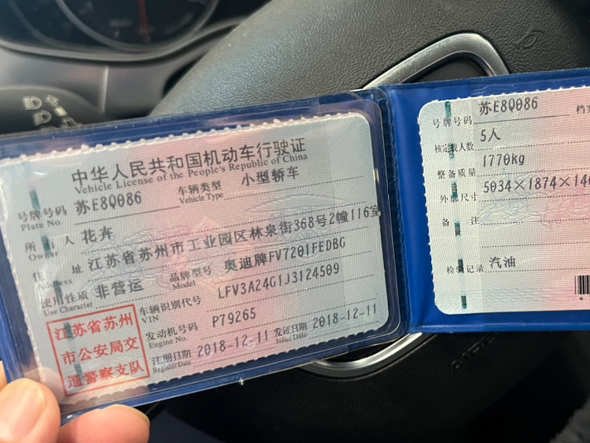 中华人民共和国机动车行驶证
Vehicle License of the People's Republic of China
号牌号码 苏E8Q086 车辆类型 小型轿车
Plate No. Vehicle Type
所有人 花卉
Owner
住址 江苏省苏州市工业园区林泉街368号2幢116室
Address
使用性质 非营运 品牌型号 奥迪牌FV7201FEDBG
Use Character Model
江苏省苏州
市公安局交
通警察支队
车辆识别代号 LFV3A24G1J3124509
VIN
发动机号码 P79265
Engine No.
注册日期 2018-12-11 发证日期 2018-12-11
Register Date Issue Date
号牌号码 苏E8Q086 档案
核定载人数 5人
整备质量 1770kg
外廓尺寸 5034×1874×146
备注
检验记录 汽油